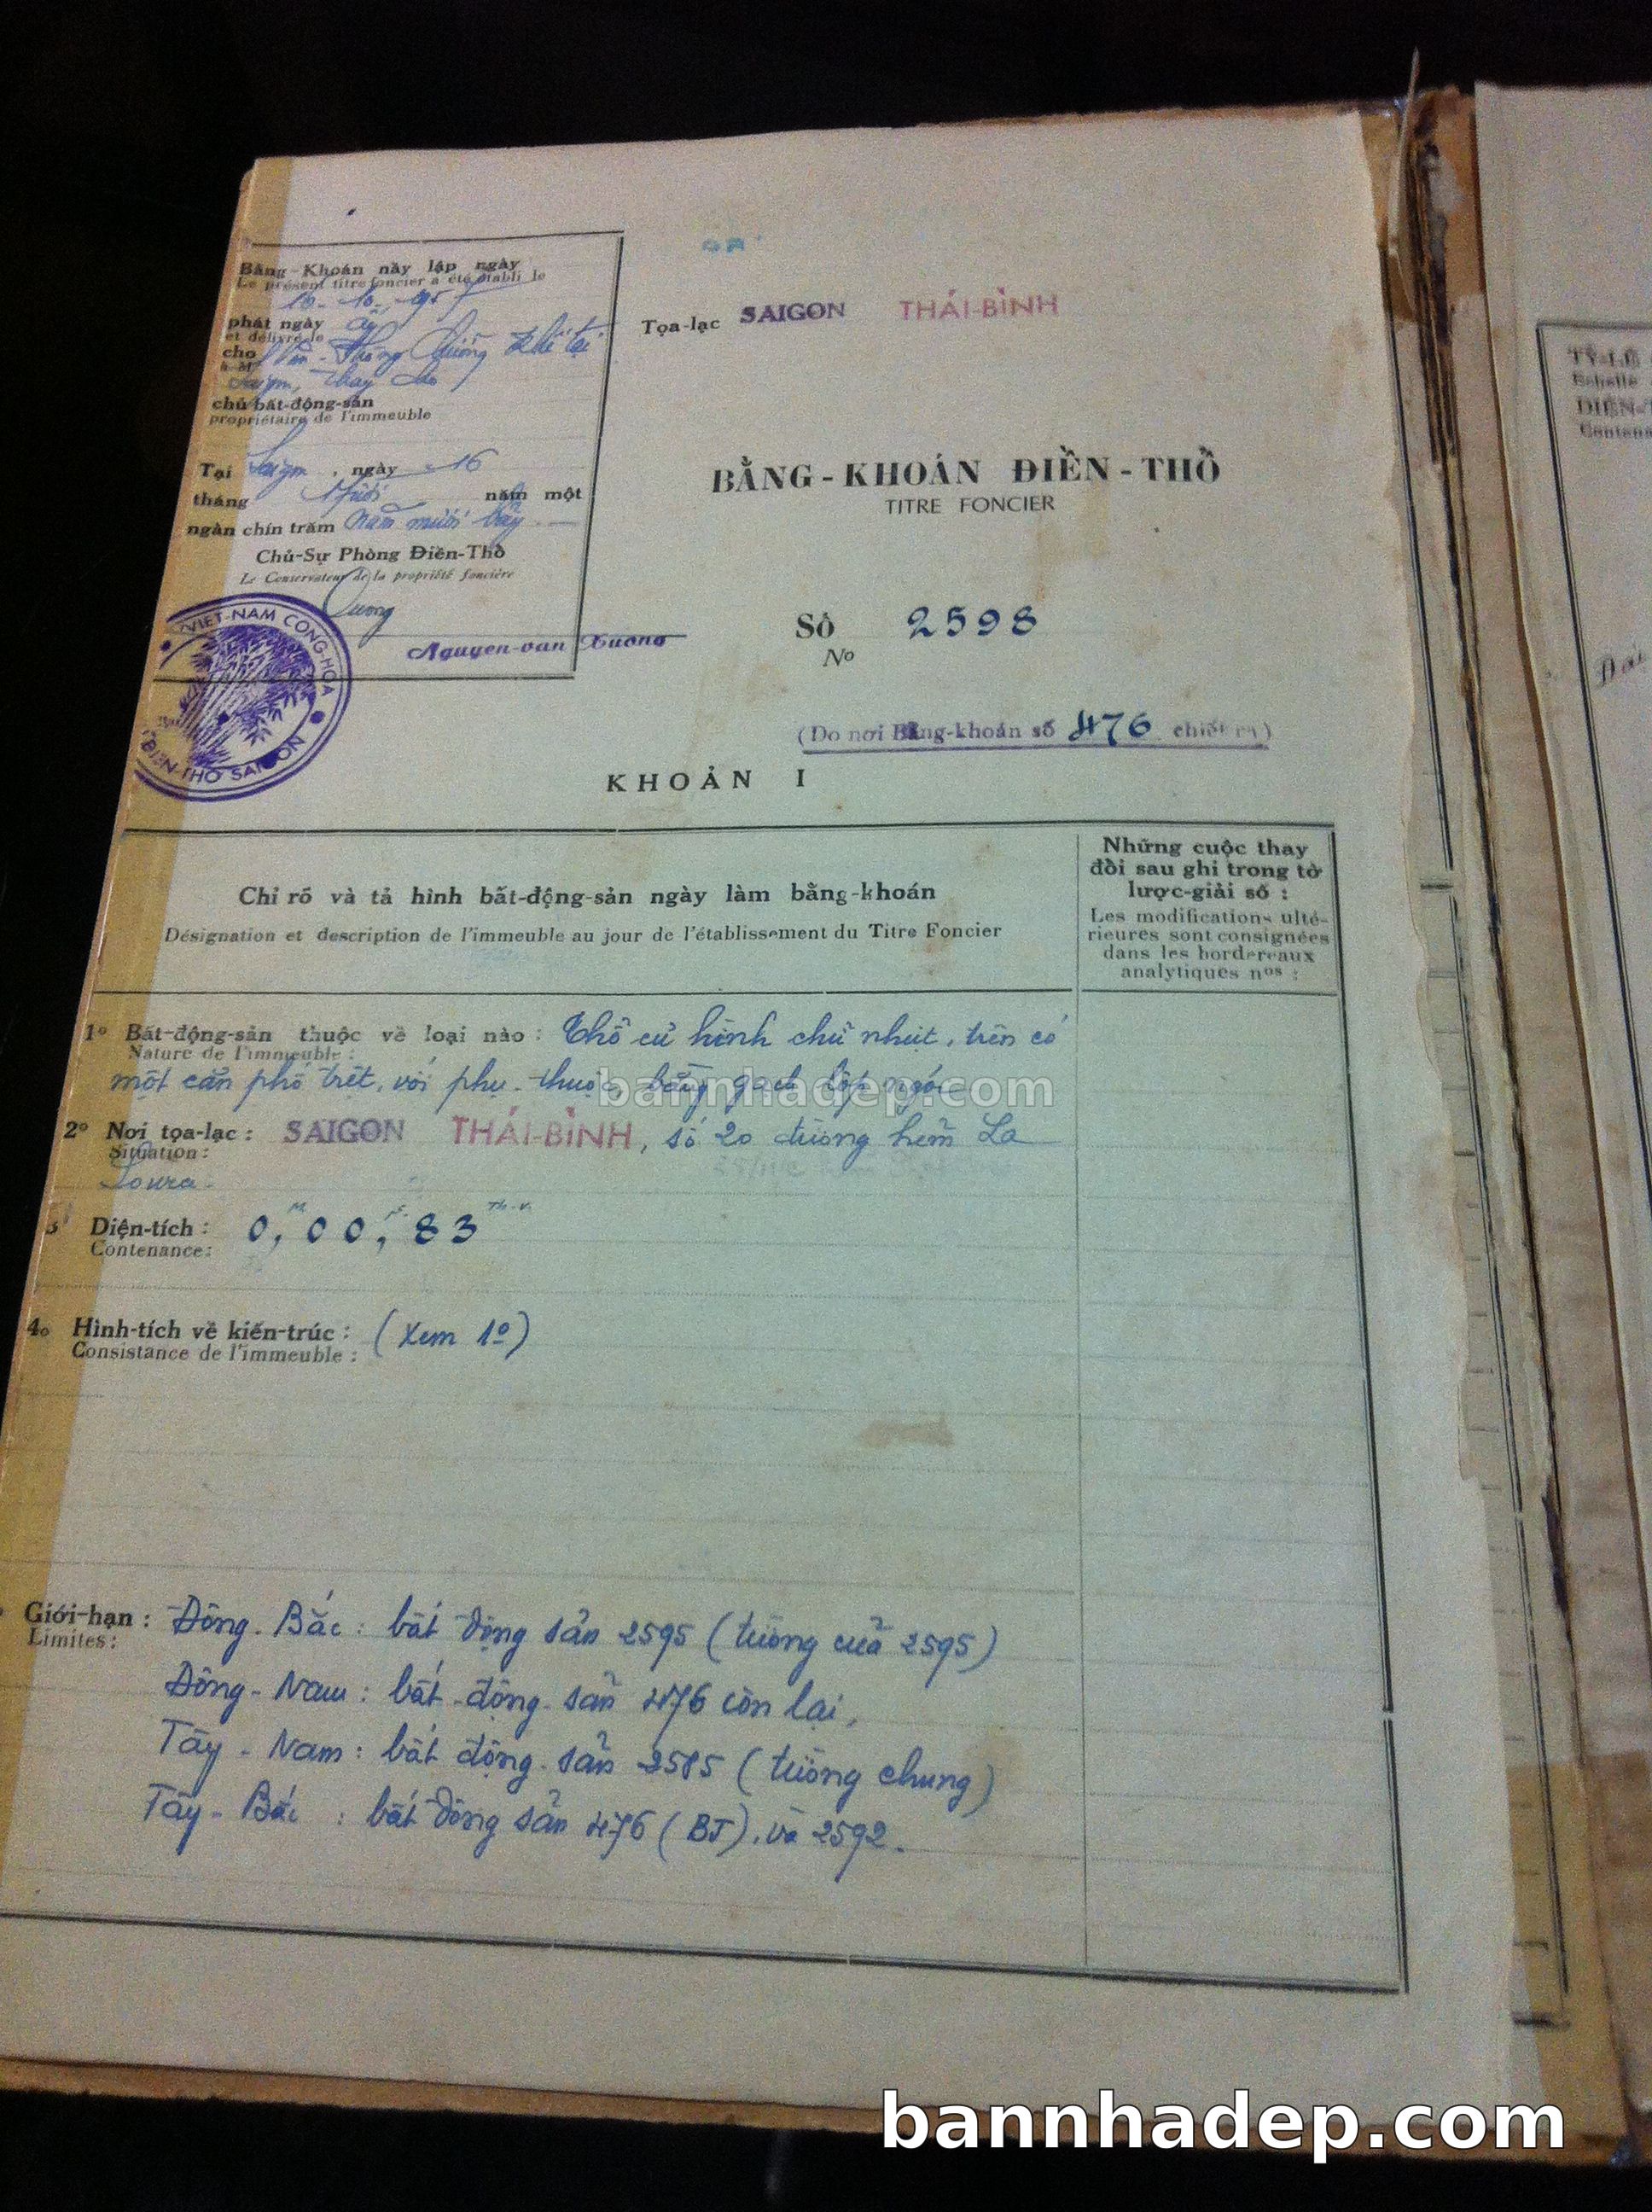 Bằng-Khoán nầy lập ngày
Le présent titre foncier a été établi le
phát ngày ấy
et délivré le
cho
à M
chủ bất-động-sản
propriétaire de l'immeuble
Tại Saigon, ngày 16
tháng Mười năm một
ngàn chín trăm năm mươi bảy
Chủ-Sự Phòng Điền-Thổ
Le Conservateur de la propriété foncière
Nguyen-van Xuong
VIET-NAM CONG-HOA
ĐIEN-THO SAIGON
Tọa-lạc SAIGON THÁI-BÌNH
BẰNG-KHOÁN ĐIỀN-THỔ
TITRE FONCIER
Số 2598
No
(Do nơi Bằng-khoán số 476 chiết ra)
KHOẢN I
Chỉ rõ và tả hình bất-động-sản ngày làm bằng-khoán
Désignation et description de l'immeuble au jour de l'établissement du Titre Foncier
Những cuộc thay
đổi sau ghi trong tờ
lược-giải số :
Les modifications ulté-
rieures sont consignées
dans les bordereaux
analytiques nos :
1o Bất-động-sản thuộc về loại nào : Thổ cư hình chữ nhựt, trên có
Nature de l'immeuble :
một căn phố trệt, với phụ-thuộc bằng gạch lợp ngói
bannhadep.com
2o Nơi tọa-lạc : SAIGON THÁI-BÌNH, số 20 đường hẻm La
Situation :
3 Diện-tích : 0, 00, 83
Contenance :
4o Hình-tích về kiến-trúc : (Xem 1o)
Consistance de l'immeuble :
Giới-hạn : Đông-Bắc : bất động sản 2595 (tường của 2595)
Limites :
Đông-Nam : bất-động-sản 476 còn lại,
Tây-Nam : bất động-sản 2585 (tường chung)
Tây-Bắc : bất động sản 476 (BT), và 2592.
bannhadep.com